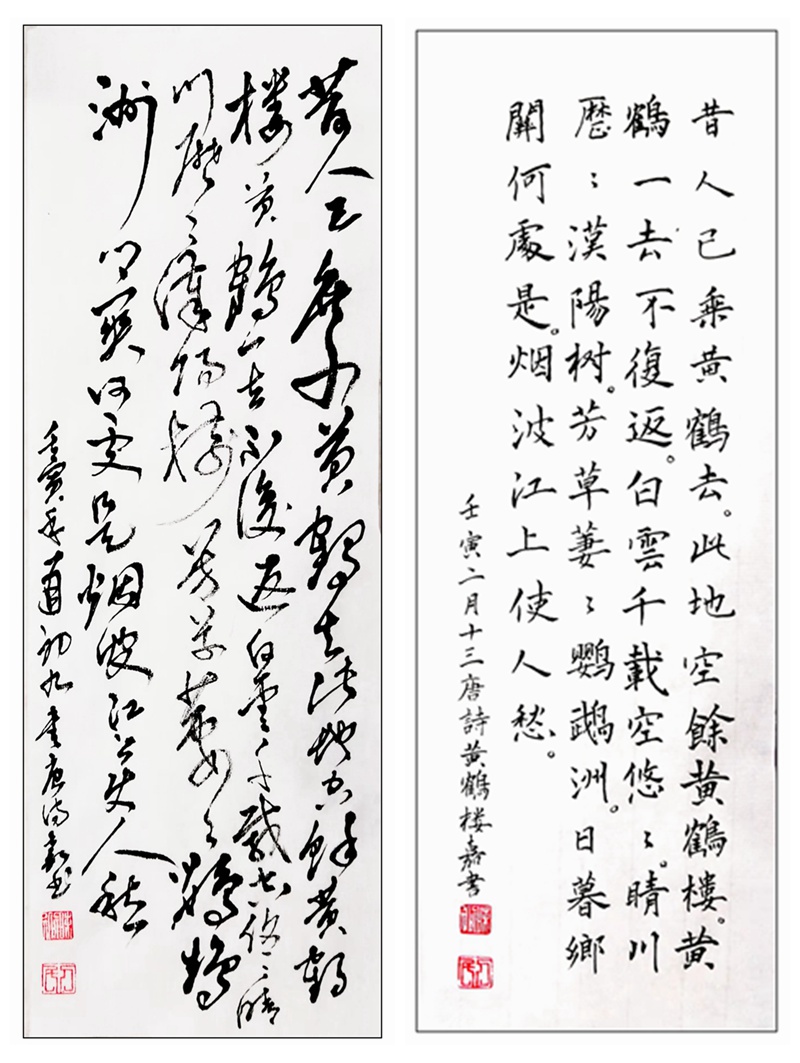 昔人已乘黄鶴去。此地空餘黄鶴樓。黄
鶴一去不復返。白雲千載空悠〻。晴川
歷〻漢陽树。芳草萋〻鹦鵡洲。日暮鄉
關何處是。烟波江上使人愁。
壬寅二月十三唐詩黄鶴楼嘉書
昔人已乘黄鶴去此地空餘黄鶴
楼黄鶴一去不復返白雲千載空悠〻晴
川歷〻漢陽樹芳草萋〻鸚鵡
洲日暮鄉關何處是烟波江上使人愁
壬寅年初九書唐诗嘉书